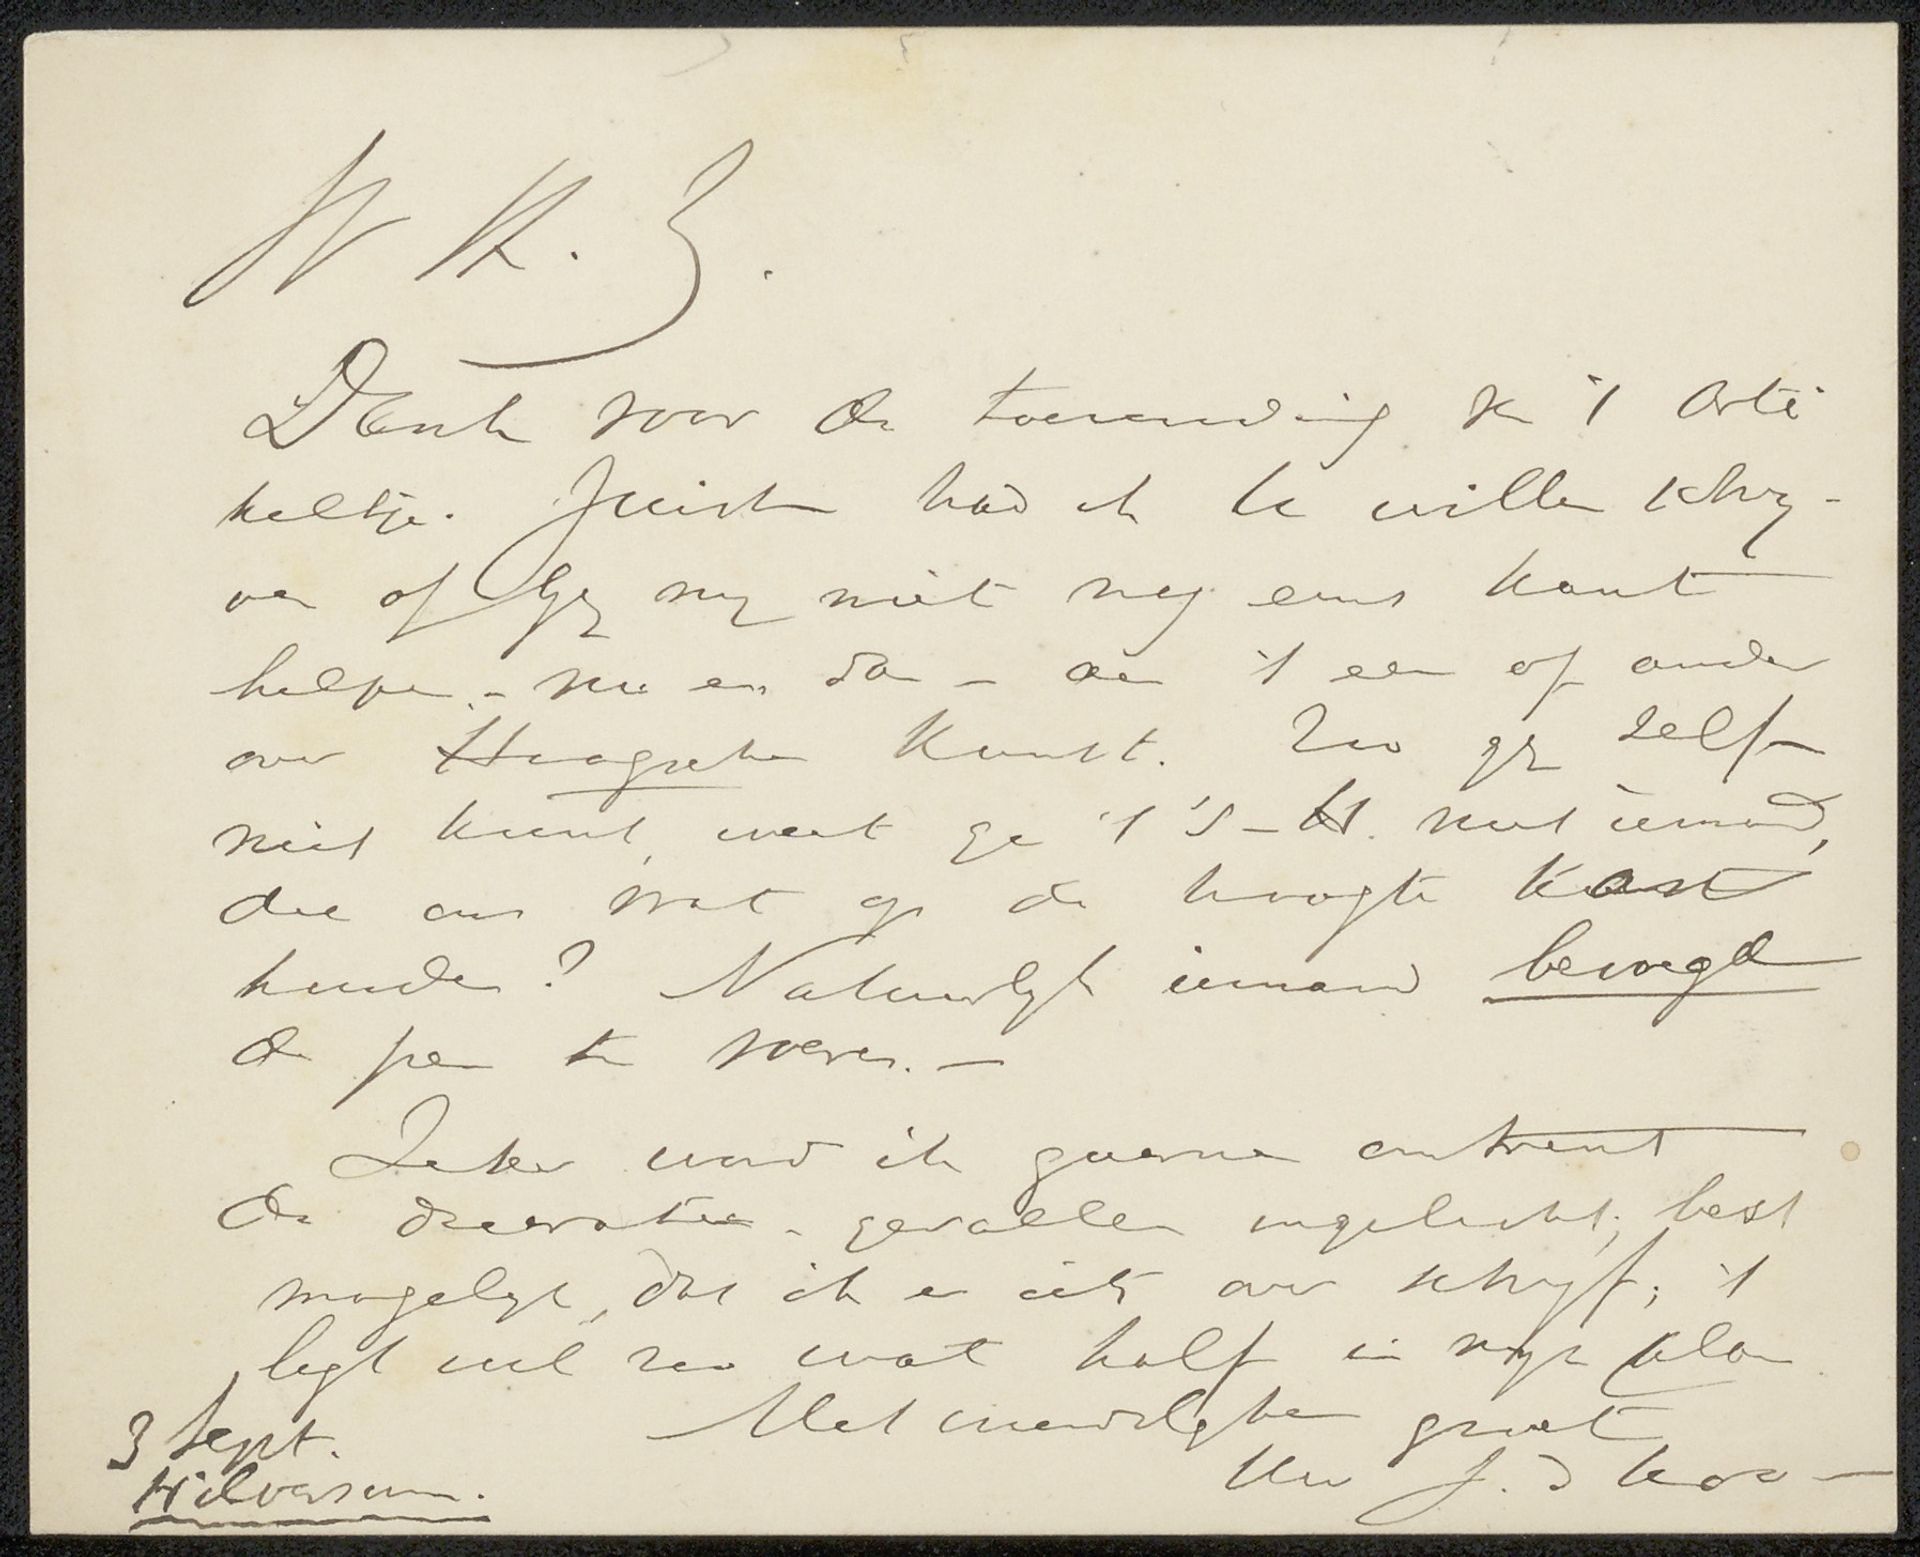 W K. Z.
Dank voor de toezending van 't arti
keltje. Juist had ik U willen schry-
ven of Gy my niet nog eens kont
helpen - nu en dan - aan 't een of ander
over Haagsche Kunst. Zoo gy zelf
niet kunt, weet ge 't 's-H. niet iemand,
die ons wat op de hoogte kan
houden? Natuurlyk iemand bevoegd
de pen te voeren. -
Zeker word ik gaarne omtrent
de decoratie-gevallen ingelicht; best
mogelyk, dat ik er iets over schryf; 't
legt wel zoo wat half in myn plan
Met vriendelyken groet
Uw J. d Koo
3 Sept.
Hilversum.